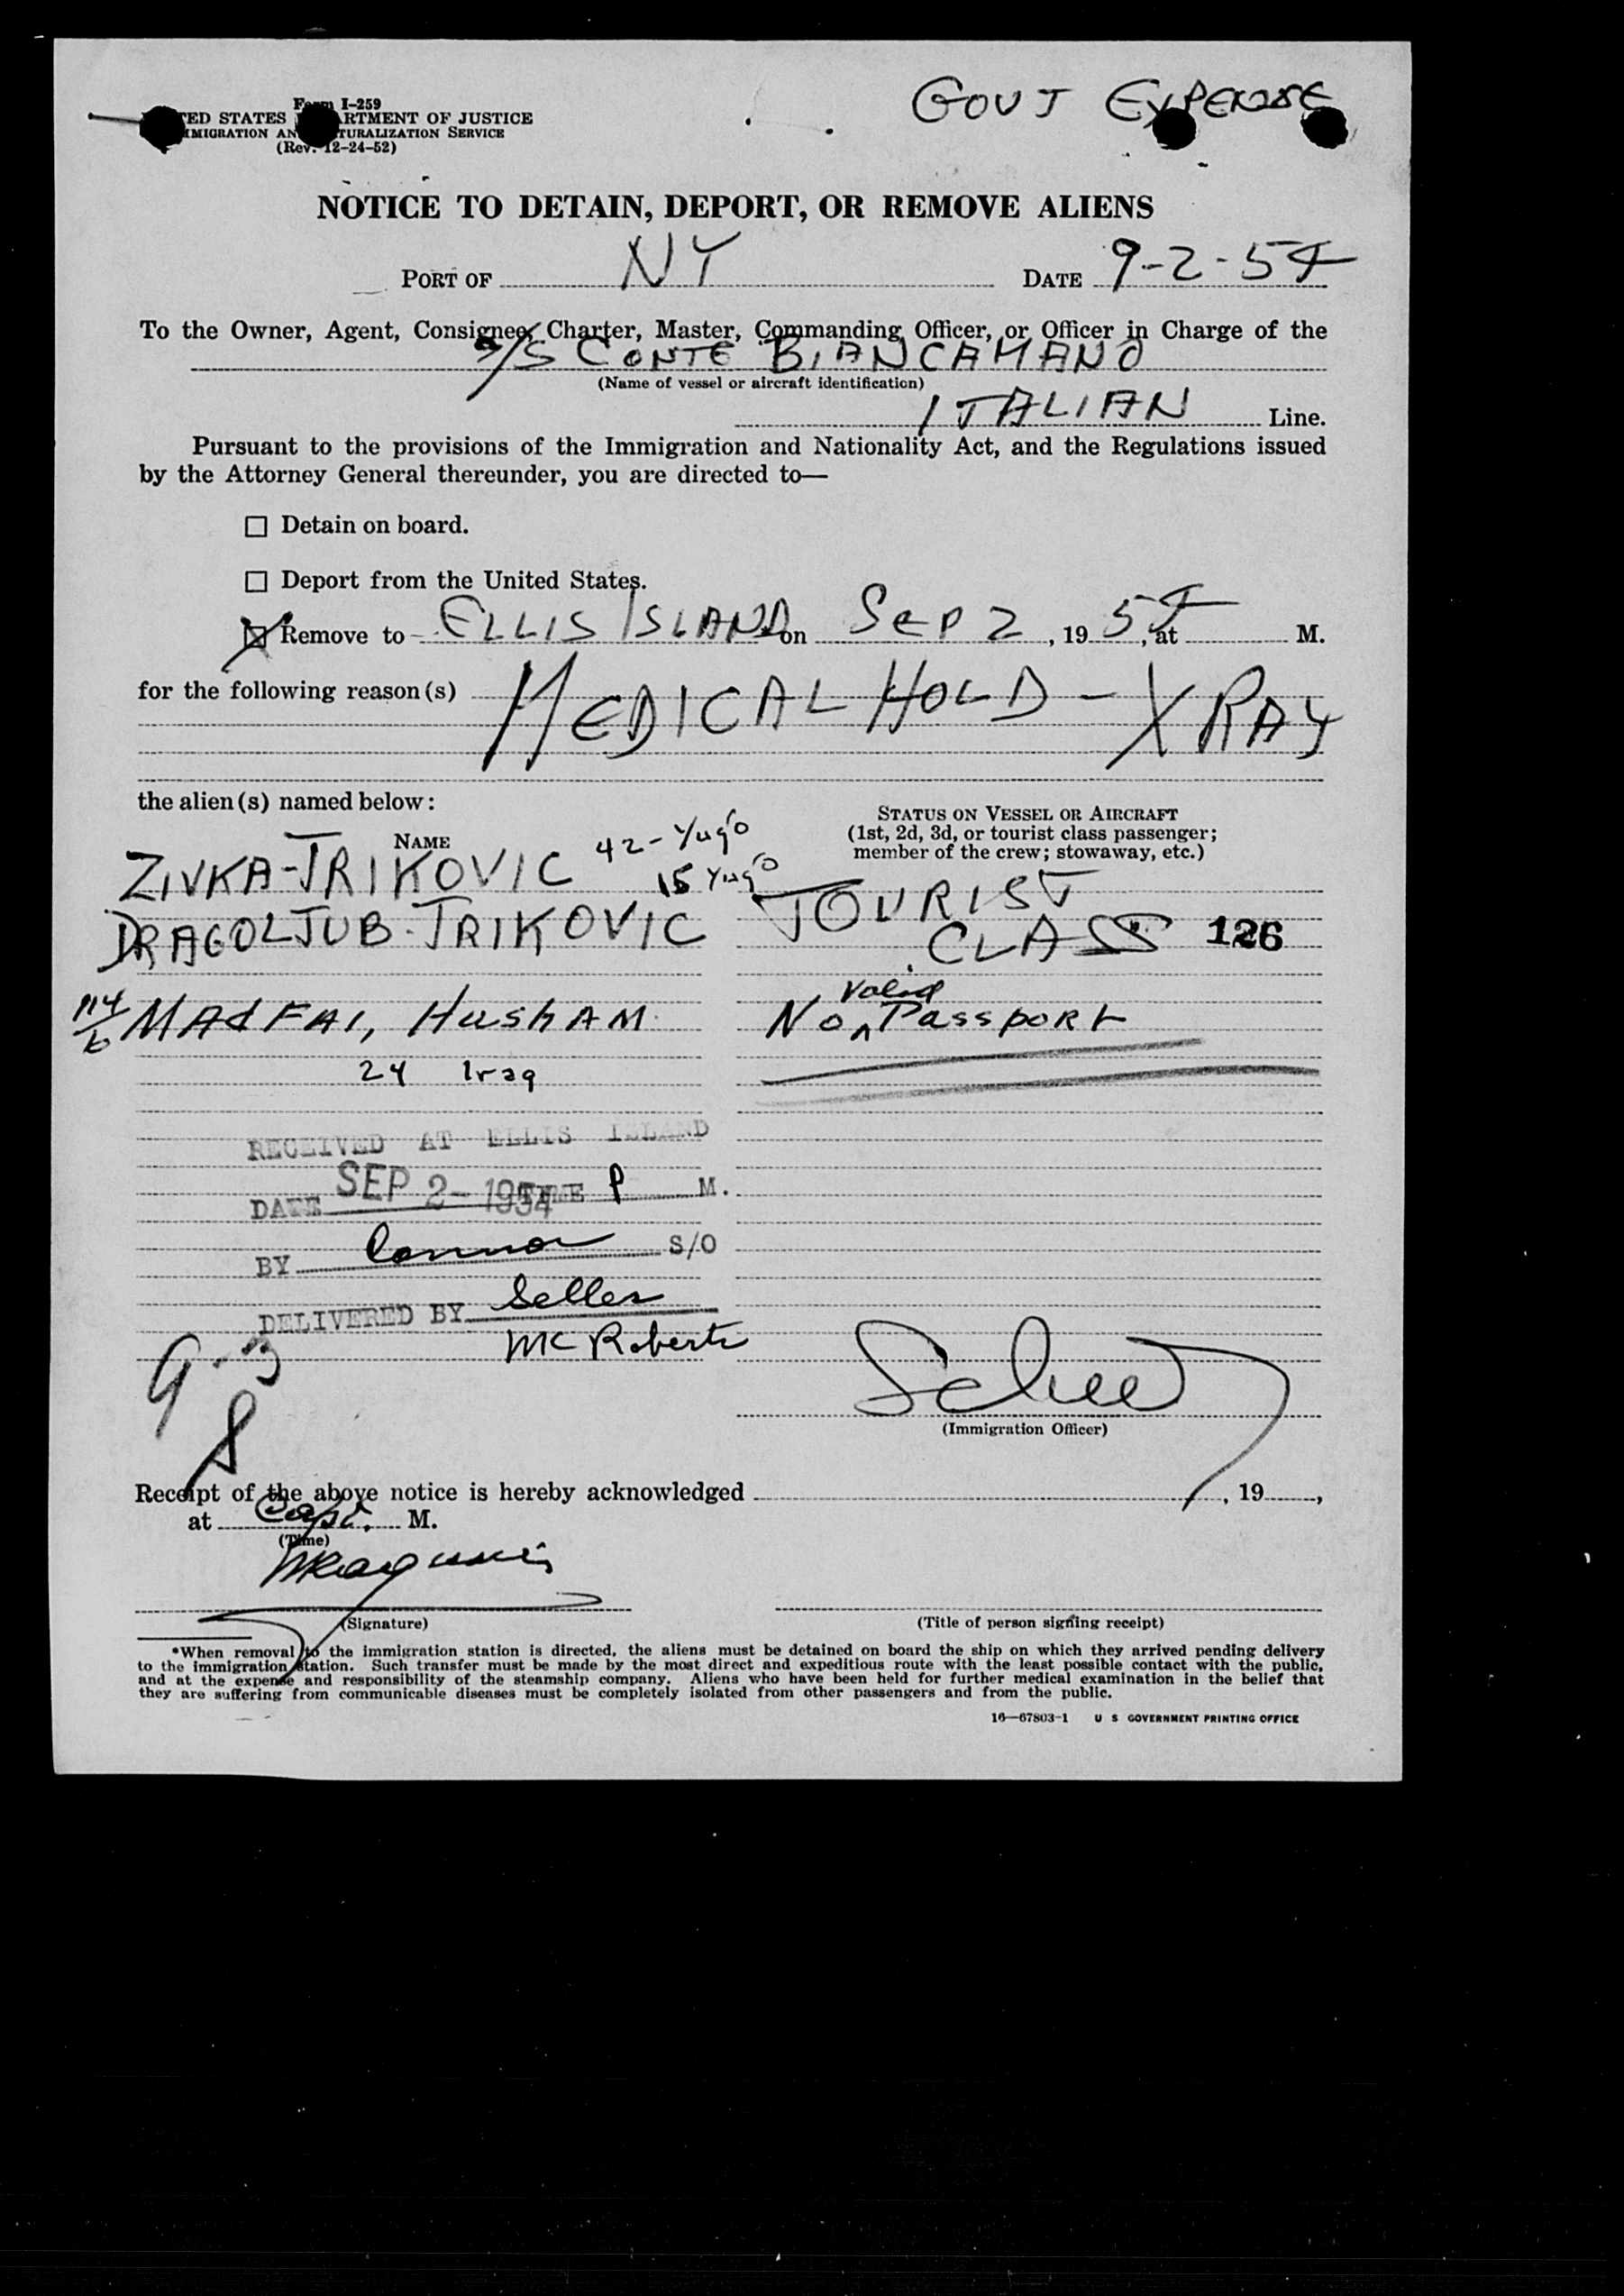 GOVT EXPENSE
Form I-259
UNITED STATES DEPARTMENT OF JUSTICE
IMMIGRATION AND NATURALIZATION SERVICE
(Rev. 12-24-52)
NOTICE TO DETAIN, DEPORT, OR REMOVE ALIENS
PORT OF NY DATE 9-2-54
To the Owner, Agent, Consignee, Charter, Master, Commanding Officer, or Officer in Charge of the
S/S CONTE BIANCAMANO
(Name of vessel or aircraft identification)
ITALIAN Line.
Pursuant to the provisions of the Immigration and Nationality Act, and the Regulations issued
by the Attorney General thereunder, you are directed to—
☐ Detain on board.
☐ Deport from the United States.
☒ Remove to ELLIS ISLAND* on SEP 2, 1954, at M.
for the following reason(s) MEDICAL HOLD - XRAY
the alien(s) named below:
STATUS ON VESSEL OR AIRCRAFT
(1st, 2d, 3d, or tourist class passenger;
member of the crew; stowaway, etc.)
NAME
ZIVKA-TRIKOVIC 42-Yugo
15 Yugo
TOURIST
DRAGOLJUB-TRIKOVIC CLASS 126
114/6 MAdFAI, HushAM. No valid Passport
24 Iraq
RECEIVED AT ELLIS ISLAND
DATE SEP 2- 1954 TIME P M.
BY Connor S/O
DELIVERED BY Seller
McRoberts
9-3
(Immigration Officer)
Receipt of the above notice is hereby acknowledged , 19 ,
at Capt. M.
(Time)
(Signature) (Title of person signing receipt)
*When removal to the immigration station is directed, the aliens must be detained on board the ship on which they arrived pending delivery
to the immigration station. Such transfer must be made by the most direct and expeditious route with the least possible contact with the public,
and at the expense and responsibility of the steamship company. Aliens who have been held for further medical examination in the belief that
they are suffering from communicable diseases must be completely isolated from other passengers and from the public.
16—67803-1 U S GOVERNMENT PRINTING OFFICE